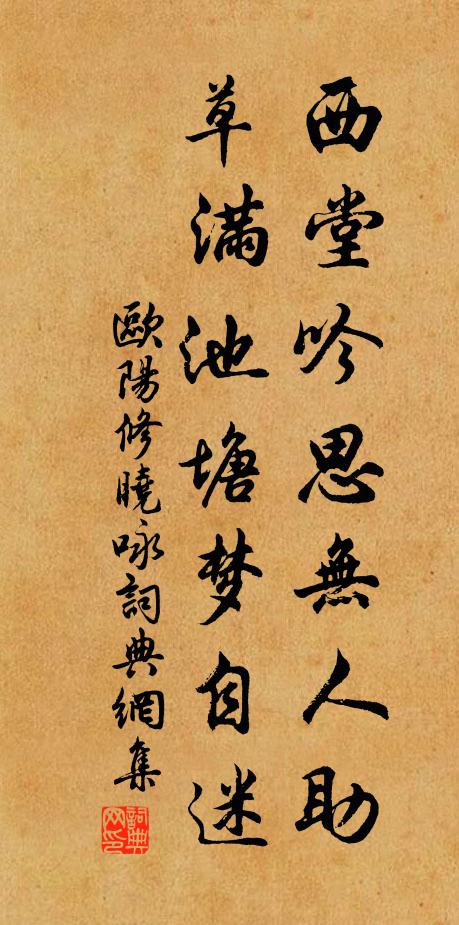 西堂吟思無人助
草满池塘梦自迷
歐陽修曉咏詞典網集
詞典网印